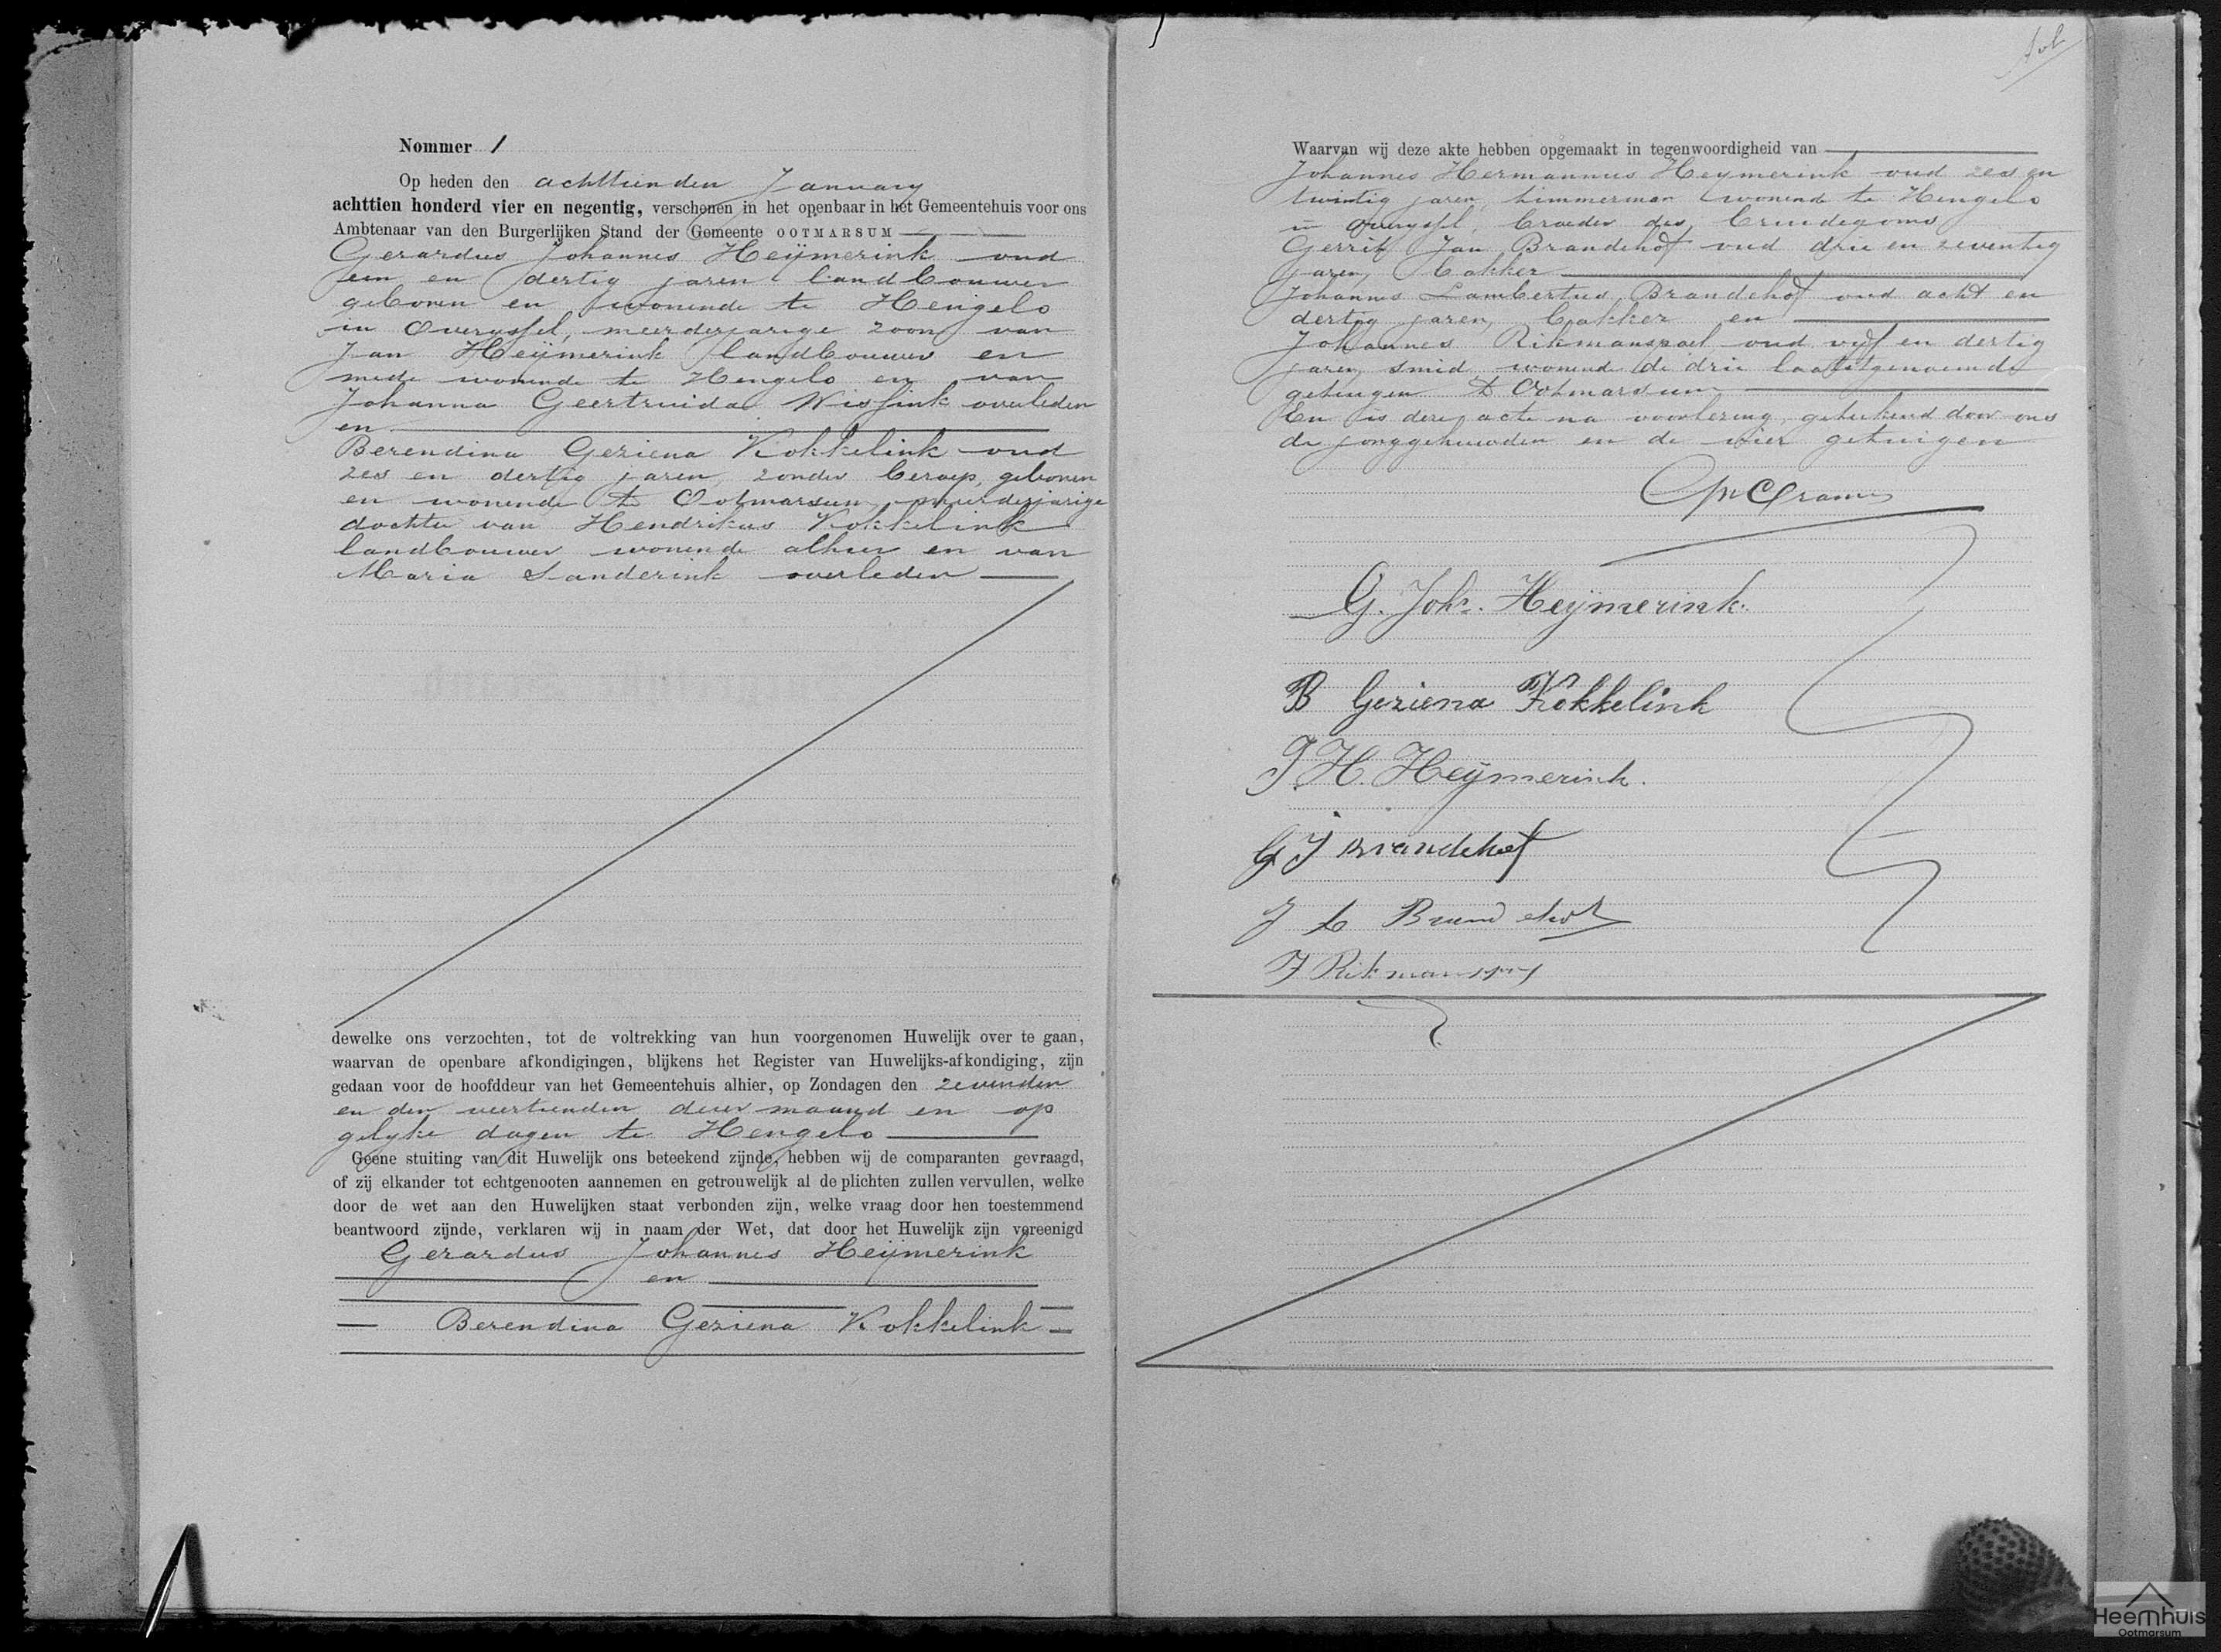 Nommer 1
Op heden den achttienden January
achttien honderd vier en negentig, verschenen in het openbaar in het Gemeentehuis voor ons
Ambtenaar van den Burgerlijken Stand der Gemeente OOTMARSUM
Gerardus Johannes Heijmerink oud
een en dertig jaren landbouwer
geboren en wonende te Hengelo
in Overyssel, meerderjarige zoon van
Jan Heijmerink landbouwer en
mede wonende te Hengelo en van
Johanna Geertruida Wissink overleden
en
Berendina Geziena Kokkelink oud
zes en dertig jaren, zonder beroep, geboren
en wonende te Ootmarsum meerderjarige
dochter van Hendrikus Kokkelink
landbouwer wonende alhier en van
Maria Sanderink overleden
dewelke ons verzochten, tot de voltrekking van hun voorgenomen Huwelijk over te gaan,
waarvan de openbare afkondigingen, blijkens het Register van Huwelijks-afkondiging, zijn
gedaan voor de hoofddeur van het Gemeentehuis alhier, op Zondagen den zevenden
en den veertienden dezer maand en op
gelyke dagen te Hengelo
Geene stuiting van dit Huwelijk ons beteekend zijnde, hebben wij de comparanten gevraagd,
of zij elkander tot echtgenooten aannemen en getrouwelijk al de plichten zullen vervullen, welke
door de wet aan den Huwelijken staat verbonden zijn, welke vraag door hen toestemmend
beantwoord zijnde, verklaren wij in naam der Wet, dat door het Huwelijk zijn vereenigd
Gerardus Johannes Heijmerink
en
Berendina Geziena Kokkelink
Waarvan wij deze akte hebben opgemaakt in tegenwoordigheid van
Johannes Hermannus Heymerink oud zes en
twintig jaren, timmerman wonende te Hengelo
in Overyssel, broeder des bruidegoms
Gerrit Jan Brandehof oud drie en zeventig
jaren, bakker
Johannes Lambertus Brandehof oud acht en
dertig jaren, bakker en
Johannes Rikmanspoel oud vyf en dertig
jaren, smid, wonende de drie laatstgenoemde
getuigen te Ootmarsum
En is deze acte na voorlezing geteekend door ons
de jonggehuwden en de vier getuigen
G. Johs. Heijmerink.
B Geziena Kokkelink
J. H. Heijmerink.
G J Brandehof
J L Brandehof
J Rikmanspoel
Heemhuis
Ootmarsum